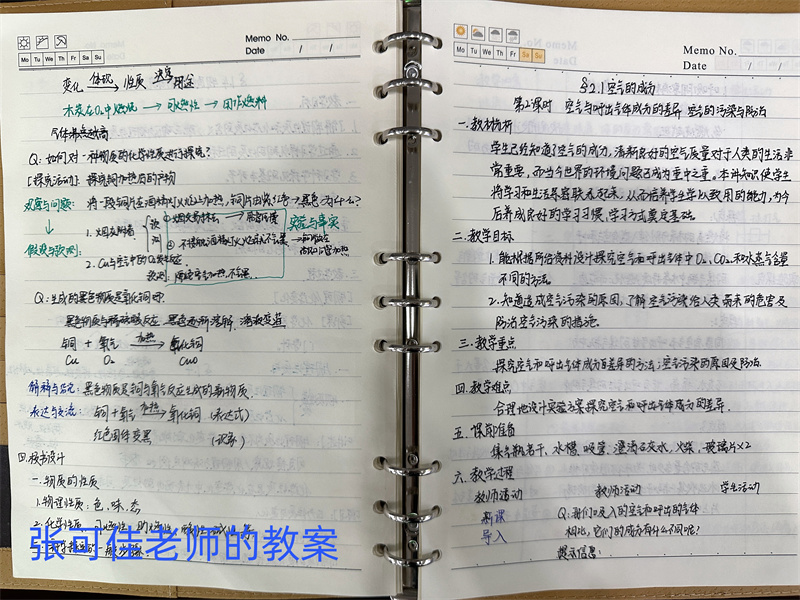 Memo No.
Date / /
Mo Tu We Th Fr Sa Su
变化 体现 性质 决定 用途
木炭在O₂中燃烧 → 可燃性 → 用作燃料
Q: 如何对一种物质的化学性质进行探究?
[探究活动]: 探究铜加热后的产物
观察与问题: 将一段铜片在酒精灯火焰上加热,铜片由紫红色→黑色,为什么?
1. 烟灰附着
假设与预测:
实验与事实
2. Cu与空气中的O₂发生反应
Q: 生成的黑色物质是氧化铜吗?
黑色物质与稀硫酸反应 黑色逐渐溶解 溶液变蓝
铜 + 氧气 加热→ 氧化铜
Cu O₂ CuO
解释与结论: 黑色物质是铜与氧气反应生成的新物质.
表达与交流: 铜 + 氧气 加热→ 氧化铜 (表达式)
红色固体变黑 (现象)
四. 板书设计
一. 物质的性质
1. 物理性质: 色、味、态
2. 化学性质:
张可佳老师的教案
Memo No.
Date / /
Mo Tu We Th Fr Sa Su
§2.1 空气的成分
第2课时 空气与呼出气体成分的差异 空气的污染与防治
一. 教材分析
学生已经知道了空气的成分,清新良好的空气质量对于人类的生活非
常重要,而当今世界的环境问题已成为重中之重。本课知识使学生
将学习和生活紧密联系起来,从而培养学生学以致用的能力,为今
后养成良好的学习习惯,学习方式奠定基础.
二. 教学目标
1. 能根据所给资料设计探究空气和呼出气体中O₂、CO₂和水蒸气含量
不同的方法.
2. 知道造成空气污染的原因,了解空气污染给人类带来的危害及
防治空气污染的措施.
三. 教学重点
探究空气和呼出气体成分差异的方法;空气污染的原因及防治.
四. 教学难点
合理地设计实验方案探究空气和呼出气体成分的差异.
五. 课前准备
集气瓶若干、水槽、吸管、澄清石灰水、火柴、玻璃片×2
六. 教学过程
教师活动 教师活动 学生活动
新课 Q: 我们吸入的空气和呼出的气体
导入 相比,它们的成分有什么不同呢?
提示信息: